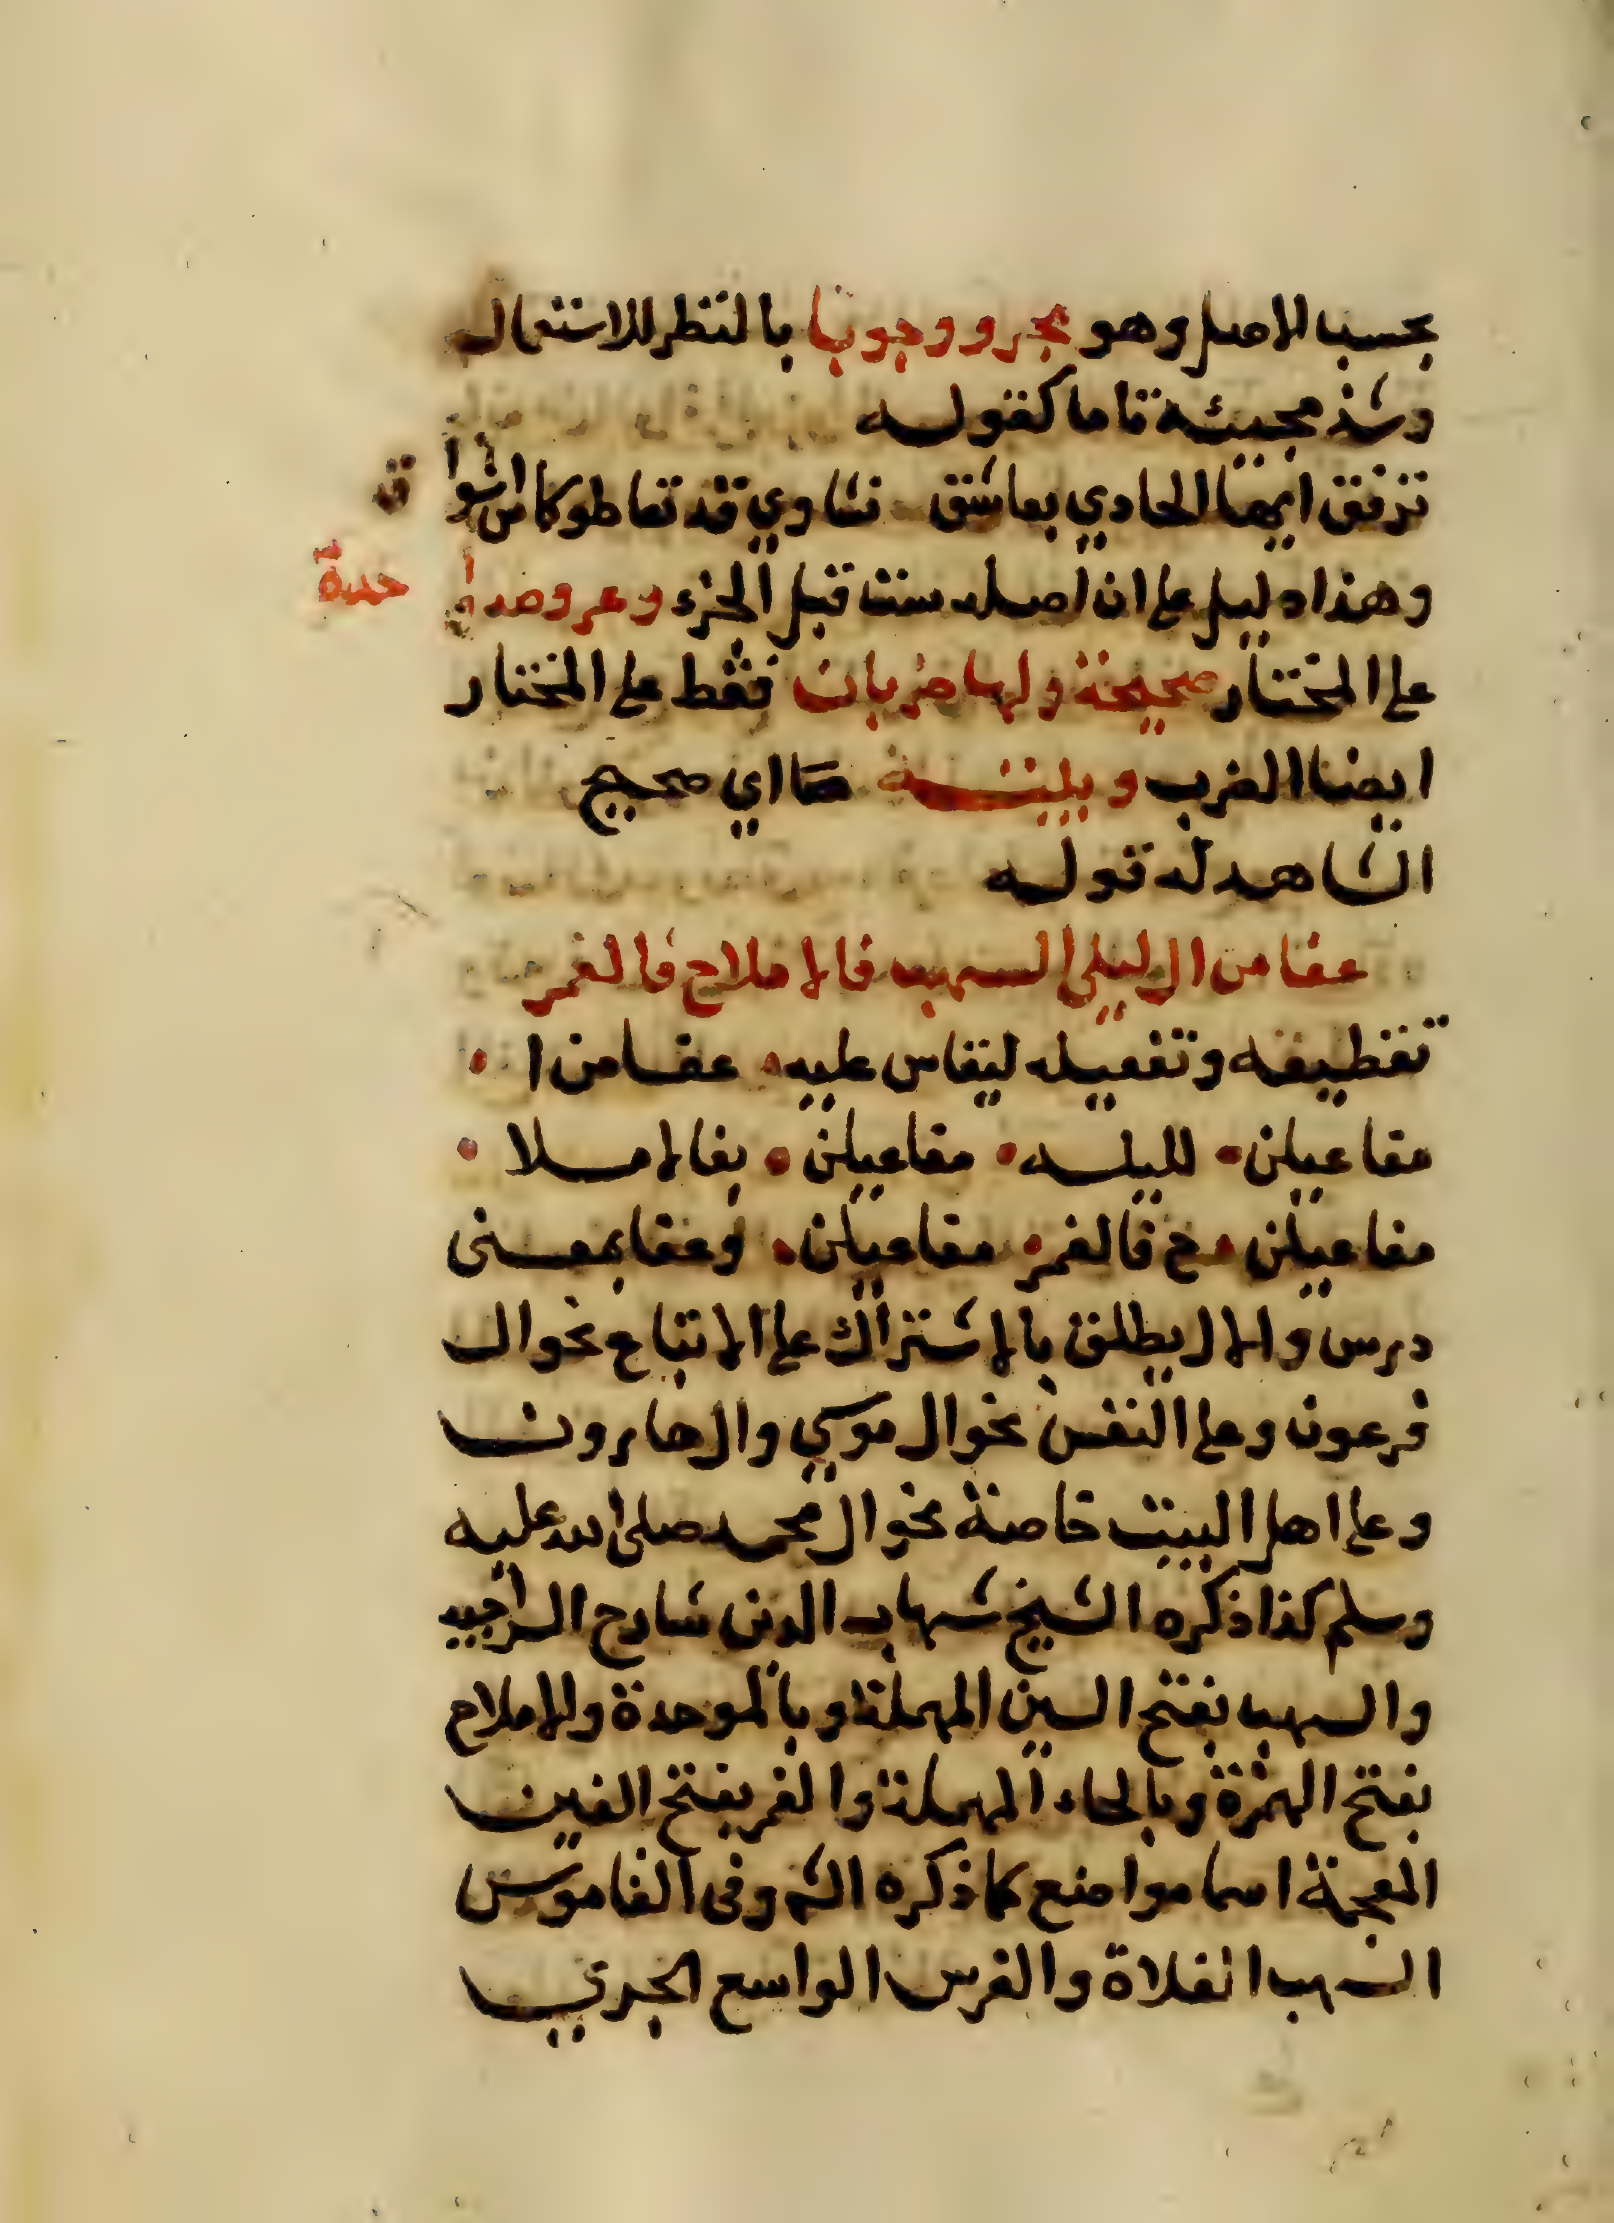 بحسب الاصل وهو مجزو وجوبا بالنظر للاستعمال
وشذ مجيئه تاما كقوله
ترفق ايها الحادي بعاشق نشاوي قد تعاطو كاس اشواق
وهذا دليل على ان اصله ستة قبل الجزء وعروضه واحدة
على المختار صحيحة ولها ضربان فقط على المختار
ايضا الضرب وبيته ها اي صحيح
الشاهد له قوله
عفا من ال ليلي السهب فالاملاح فالغمر
تقطيعه وتفعيله ليقاس عليه عفا من ا
مفاعيلن لليله مفاعيلن بفالاملا
مفاعيلن ح فالغمر مفاعيلن وعفا بمعنى
درس والال يطلق بالاشتراك على الاتباع نحو ال
فرعون وعلى النفس نحو ال موسي وال هارون
وعلى اهل البيت خاصة نحو ال محمد صلى الله عليه
وسلم كذا ذكره الشيخ شهاب الدين شارح
والسهب بفتح السين المهملة وبالموحدة والاملاح
بفتح الهمزة وبالحاء المهملة والغمر بفتح الغين
المعجمة اسما مواضع كما ذكره الشم وفى القاموس
السهب الفلاة والفرس الواسع الجري